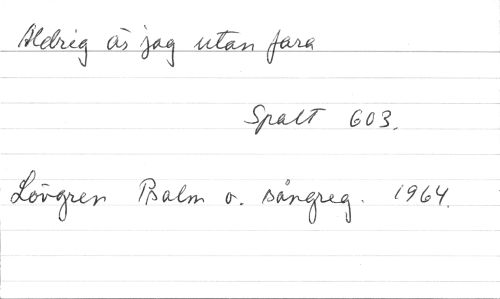 Aldrig är jag utan fara
Spalt 603.
Lövgren Psalm o. sångreg. 1964.